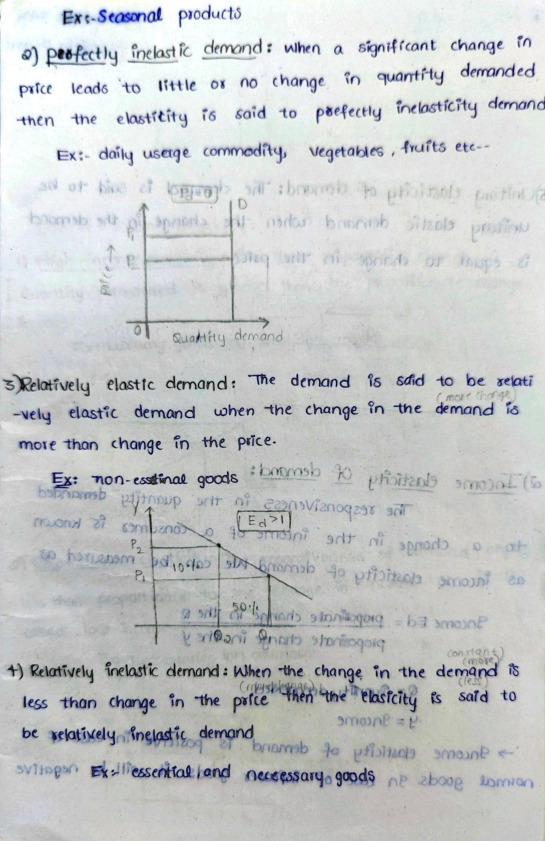 Ex:- Seasonal products
2) perfectly inelastic demand: When a significant change in
price leads to little or no change in quantity demanded
then the elastitity is said to prefectly inelasticity demand
Ex:- daily userge commodity, vegetables, fruits etc--
Ed=0
D
P1
P
Price →
0
Quantity demand
3) Relatively elastic demand: The demand is said to be relati
(more change)
-vely elastic demand when the change in the demand is
more than change in the price.
Ex: non-esstinal goods
Y
Ed>1
P2
10%
P1
50%
Q2
Q1
(constant)
(more)
4) Relatively inelastic demand: When the change in the demand is
(less)
less than change in the price then the elasicity is said to
be relatively inelastic demand
Ex:- essential and neccessary goods